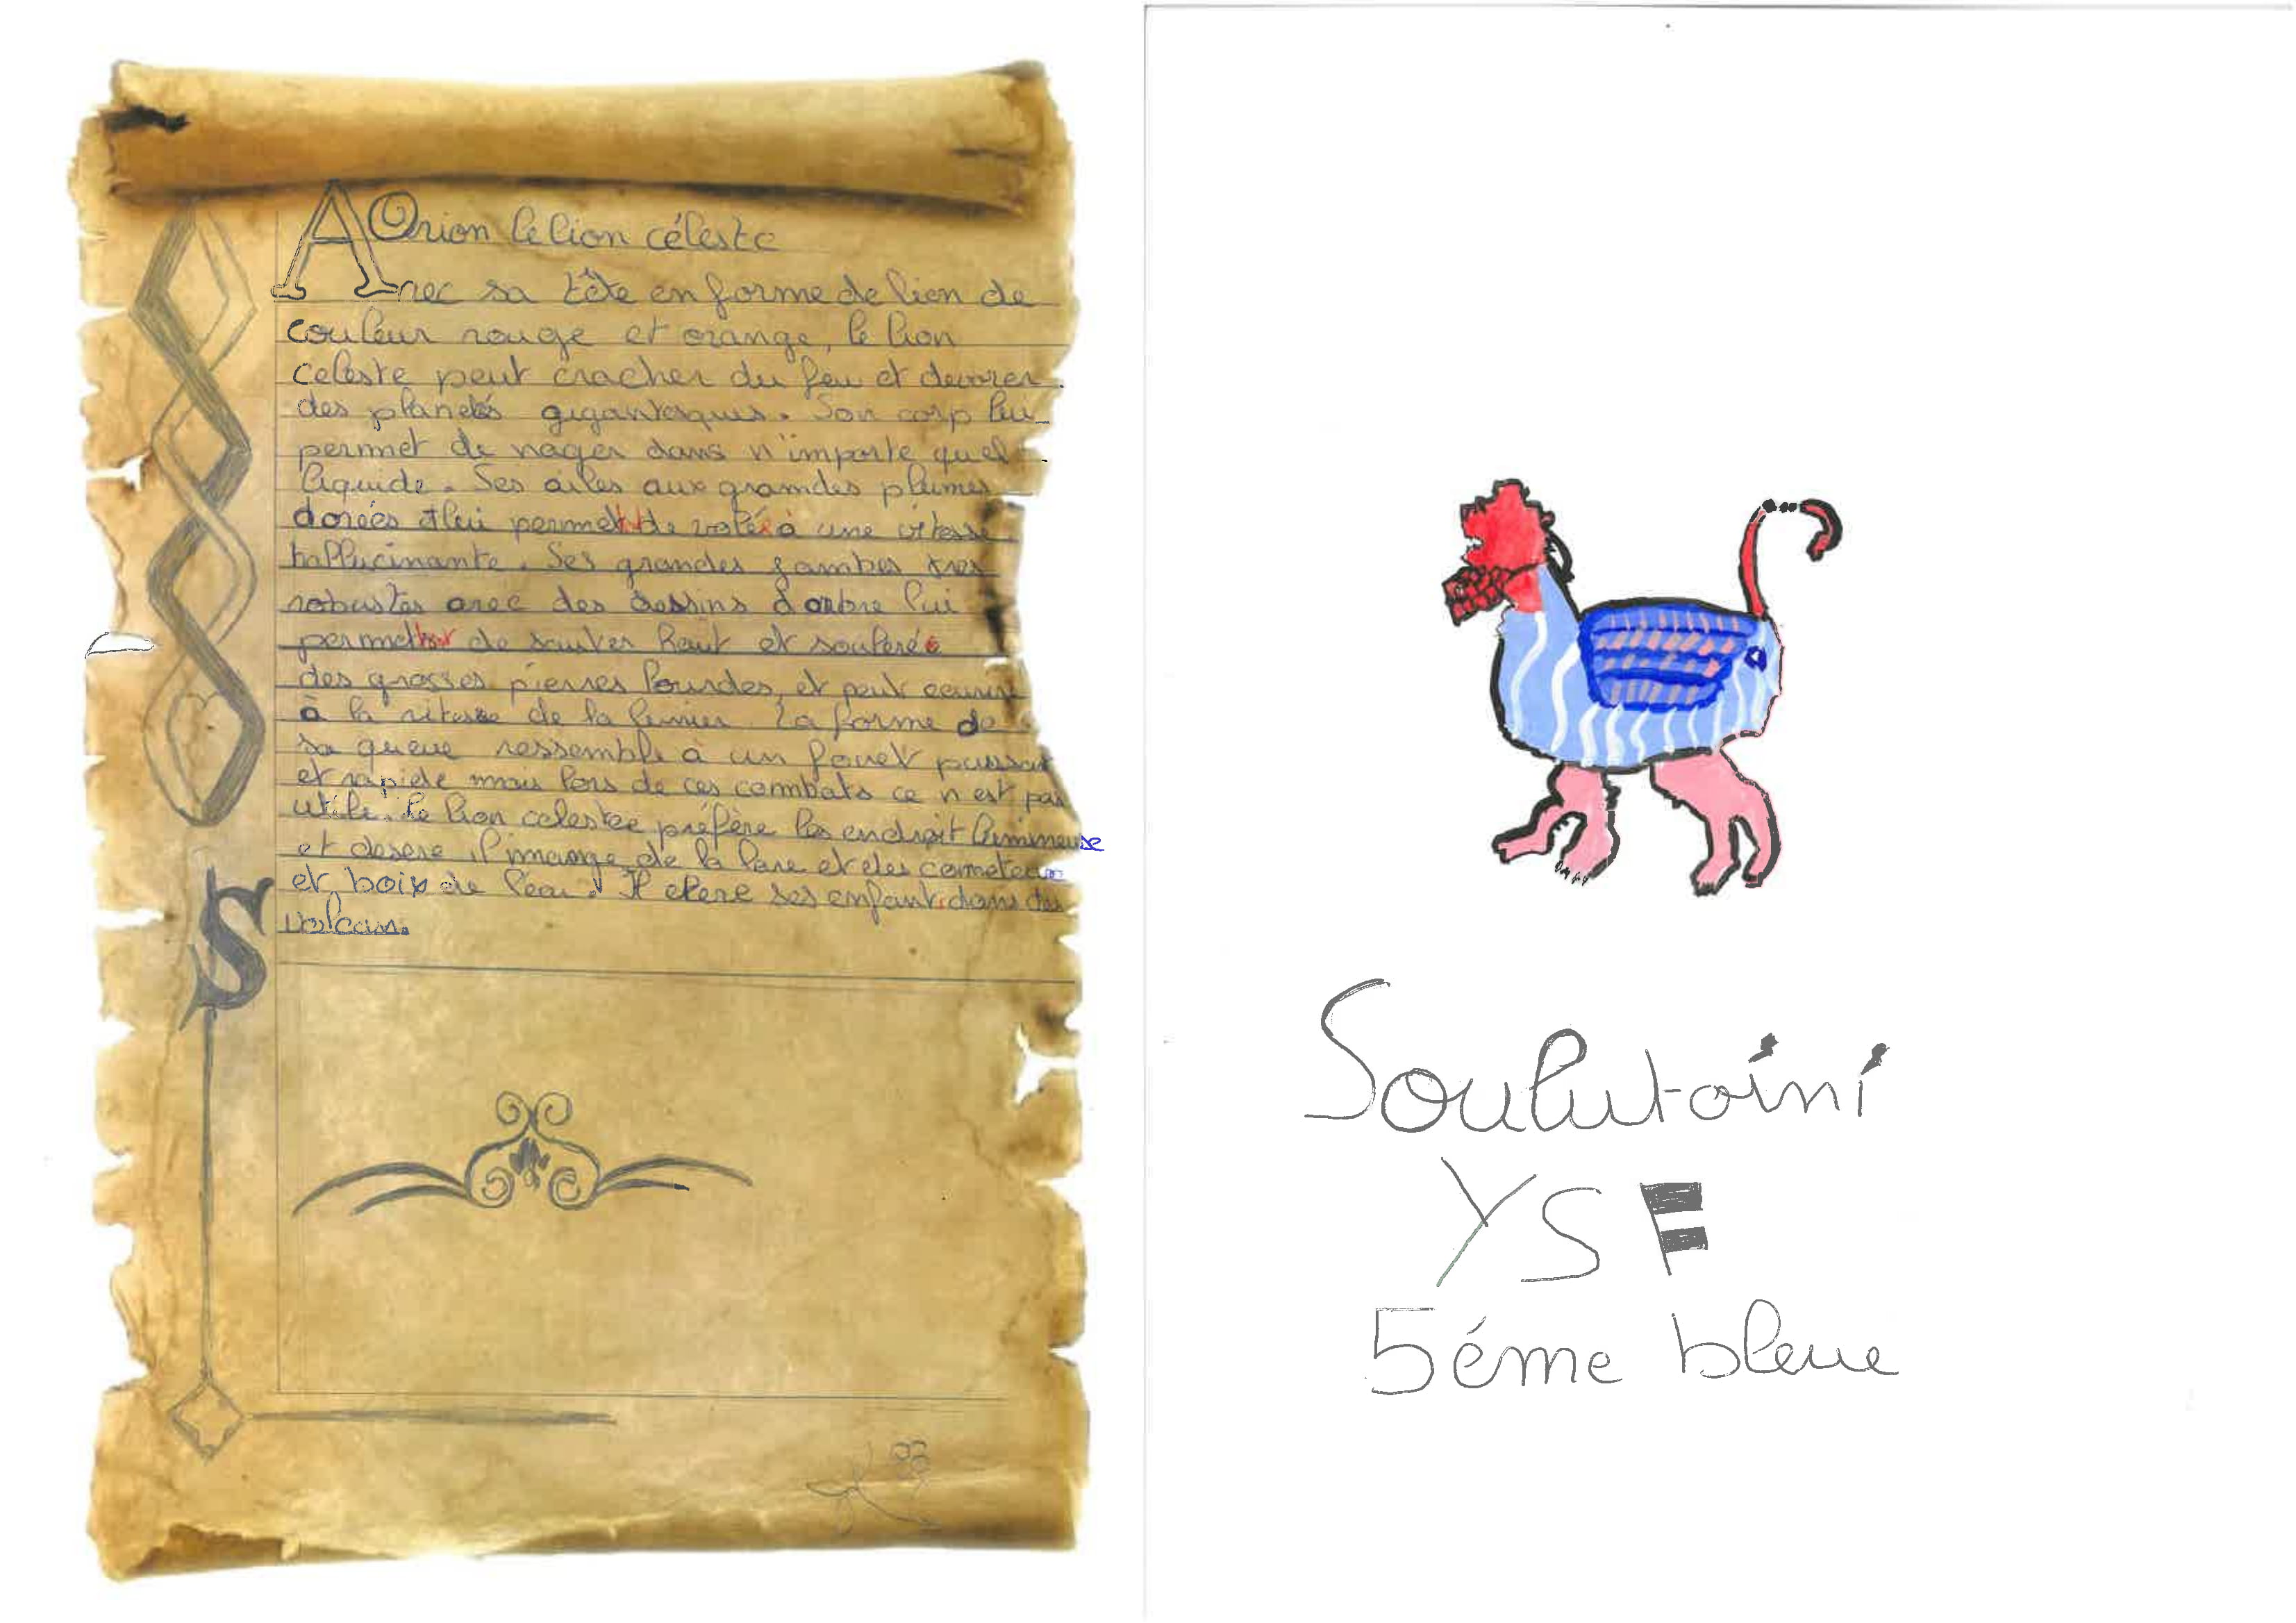 Orion le lion céleste
Avec sa tête en forme de lion de
couleur rouge et orange, le lion
celeste peut cracher du feu et devorer
des planetes gigantesques. Son corp lui
permet de nager dans n'importe quel
liquide. Ses ailes aux grandes plumes
dorées lui permettent de voler à une vitesse
hallucinante. Ses grandes jambes tres
robustes avec des dessins d'arbre lui
permettent de sauter haut et soulever
des grosses pierres lourdes, et peut courir
à la vitesse de la lumier. La forme de
sa queue ressemble à un fouet puissant
et rapide mais lors de ces combats ce n'est pas
utile. Le lion celeste préfère les endroit lumineuse
et desere il mange de la lave et des cometes
et boix de l'eau. Il eleve ses enfant dans des
volcan.
S
Soulutoini
YSF
5éme bleue